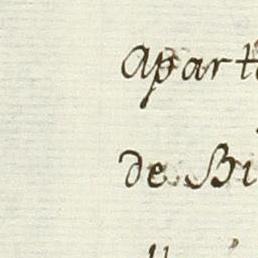 apart
de Bi